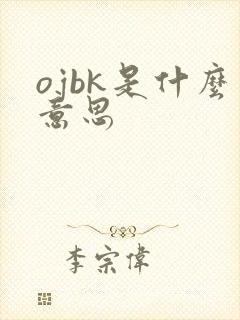 ojbk是什麼
意思
李宗偉